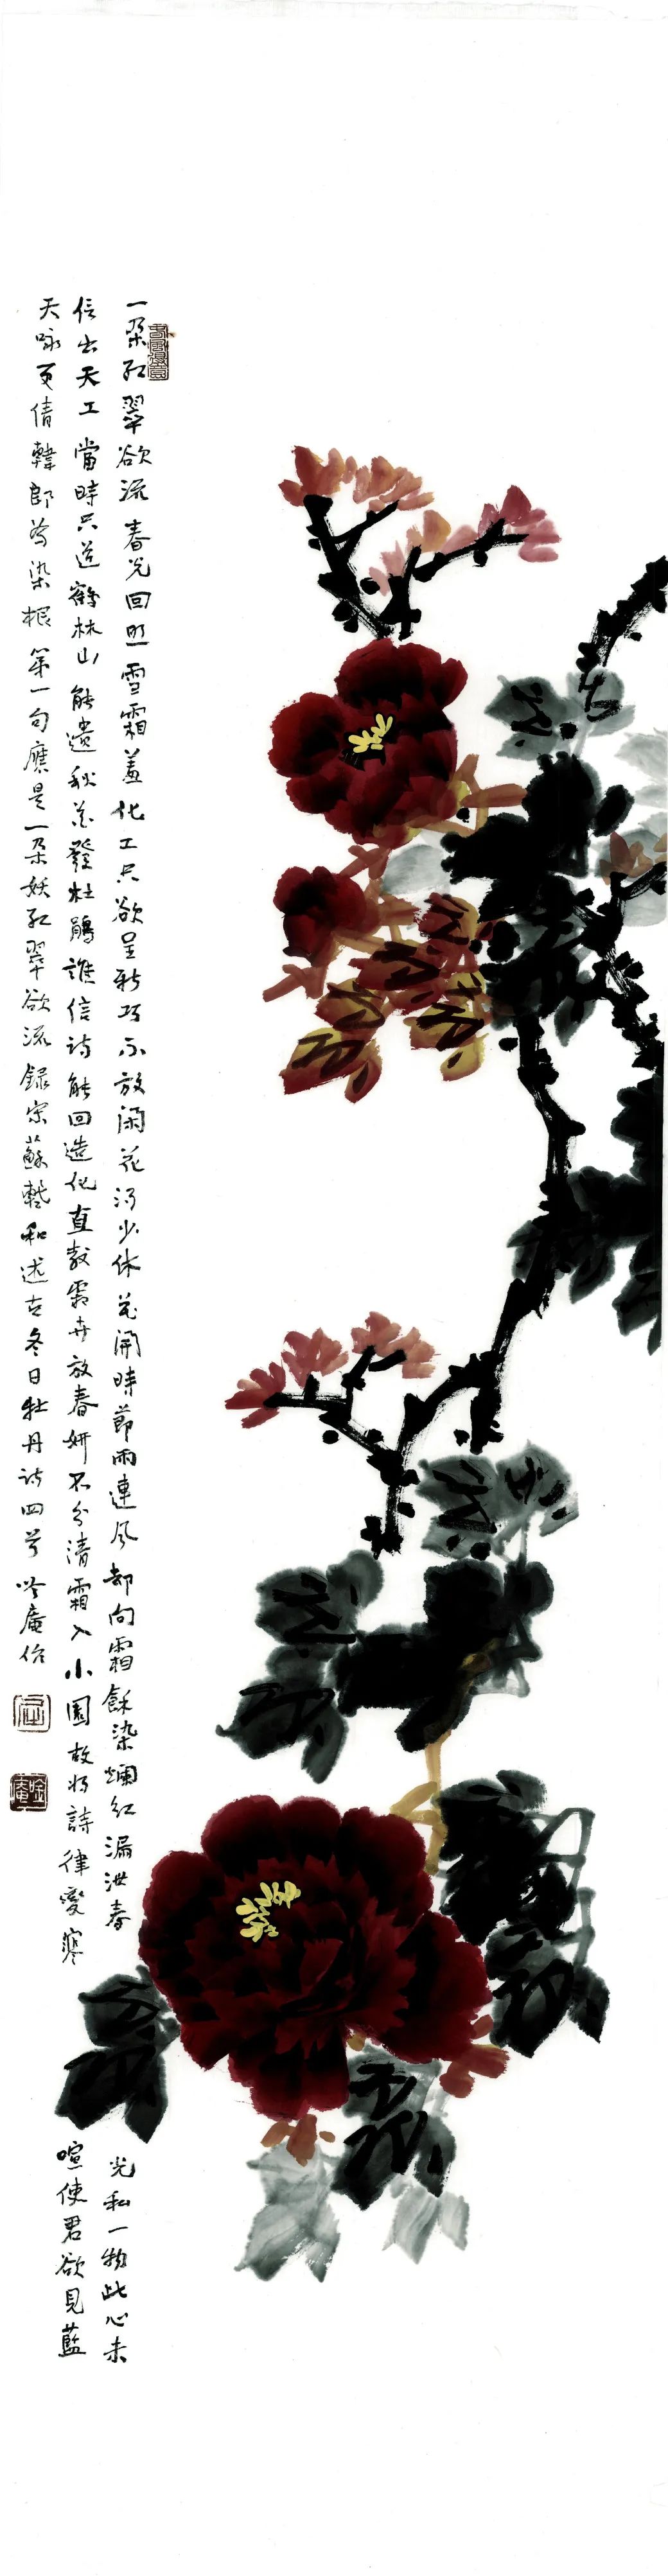 一朵紅翠欲流春光回照雪霜羞化工只欲呈新巧不放閑花得少休花開時節雨連風却向霜餘染爛紅漏泄春光私一物此心未
信出天工當時只道鶴林山能遣秋花發杜鵑誰信詩能回造化直教霜卉放春妍不分清霜入小園故將詩律變寒暄使君欲見藍
天咏更倩韓郎為染根第一句應是一朵妖紅翠欲流錄宋蘇軾和述古冬日牡丹詩四首吟庵作
吟庵